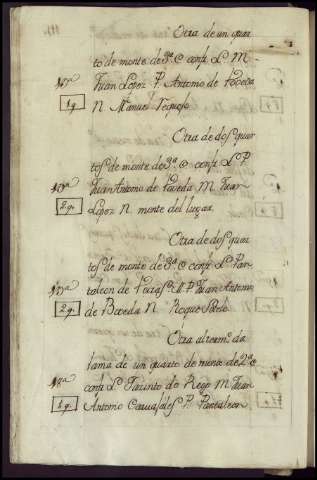 Otra de un quar
to de monte de 3ª C confr. L. M.
Juan Lopez P. Antonio de
N. Manuel
1 q.
Otra de dos quar
tos de monte de 3ª C confr. L. P.
Juan Antonio de M. Juan
Lopez N. monte del lugar
2 q.
Otra de dos quar
tos de monte de 3ª C confr. L. Pan
taleon de M. P. Juan Antonio
de Boveda N. Roque
2 q.
Otra al term.º da
lama de un quarto de monte de 2ª C
confr. L. Jacinto do Rego M. Juan
Antonio P. Pantaleon
1 q.